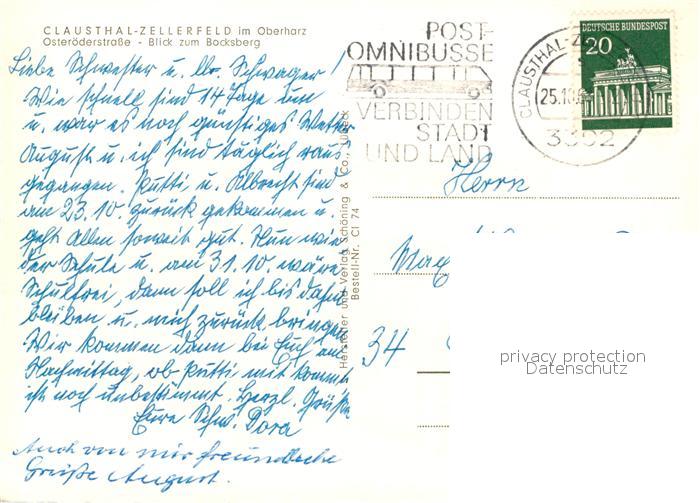 CLAUSTHAL-ZELLERFELD im Oberharz
Osteröderstraße - Blick zum Bocksberg
Liebe Schwester u. lb. Schwager!
Wie schnell sind 14 Tage um
u. war es noch günstiges Wetter
August u. ich sind täglich raus
gegangen. Putti u. Albrecht sind
am 23.10. zurück gekommen u.
geht Allen soweit gut. Nun wie
der Schule u. am 31.10. wäre
Schulfrei, dann soll ich bis dahin
bleiben u. mich zurück bringen
Wir kommen dann bei Euch am
Nachmittag, ob Putti mit kommt
ist noch unbestimmt. Herzl. Grüße
Eure Schw. Dora
Auch von mir freundliche
Grüße August.
Hersteller und Verlag Schöning & Co., Lübeck
Bestell-Nr. Cl 74
POST-
OMNIBUSSE
VERBINDEN
STADT
UND LAND
CLAUSTHAL-Z
25.10.
3392
DEUTSCHE BUNDESPOST
20
Herrn
34
privacy protection
Datenschutz